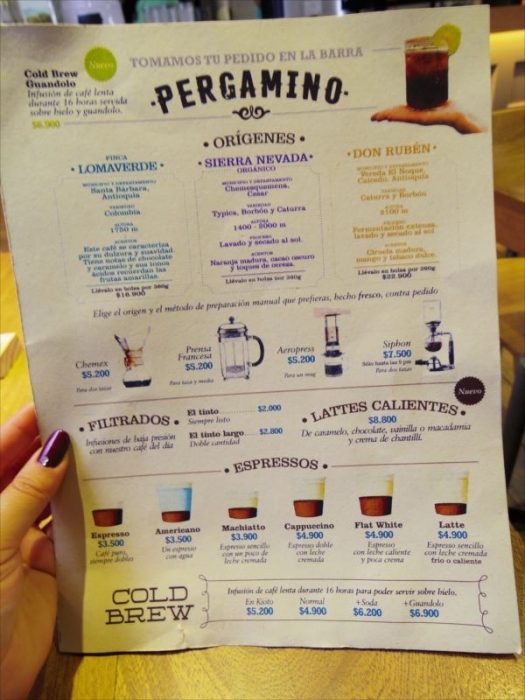 TOMAMOS TU PEDIDO EN LA BARRA
Cold Brew
Guandolo
Nuevo
Infusión de café lenta
durante 16 horas servida
sobre hielo y guandolo.
$6.900
PERGAMINO
• ORÍGENES •
FINCA
• LOMAVERDE •
MUNICIPIO Y DEPARTAMENTO
Santa Bárbara,
Antioquia
VARIEDAD
Colombia
ALTURA
1750 m
ACENTOS
Este café se caracteriza
por su dulzura y suavidad.
Tiene notas de chocolate
y caramelo y sus tonos
ácidos recuerdan las
frutas amarillas.
Llévalo en bolsa por 340g
$16.900
• SIERRA NEVADA •
ORGÁNICO
MUNICIPIO Y DEPARTAMENTO
Chemesquemena,
Cesar
VARIEDAD
Typica, Borbón y Caturra
ALTURA
1400 - 2000 m
PROCESO
Lavado y secado al sol.
ACENTOS
Naranja madura, cacao oscuro
y toques de cereza.
Llévalo en bolsa por 340g
• DON RUBÉN •
MUNICIPIO Y DEPARTAMENTO
Vereda El Noque,
Caicedo, Antioquia
VARIEDAD
Caturra y Borbón
ALTURA
2100 m
PROCESO
Fermentación extensa,
lavado y secado al sol
ACENTOS
Ciruela madura,
mango y tabaco dulce
Llévalo en bolsa por 340g
$22.900
Elige el origen y el método de preparación manual que prefieras, hecho fresco, contra pedido
Chemex
$5.200
Para dos tazas
Prensa
Francesa
$5.200
Para taza y media
Aeropress
$5.200
Para un mug
Siphon
$7.500
Sólo hasta las 6 pm
Para dos tazas
• FILTRADOS •
Infusiones de baja presión
con nuestro café del día
El tinto $2.000
Siempre listo
El tinto largo $2.800
Doble cantidad
Nuevo
• LATTES CALIENTES •
$8.800
De caramelo, chocolate, vainilla o macadamia
y crema de chantillí.
• ESPRESSOS •
Espresso
$3.500
Café puro,
siempre doble
Americano
$3.500
Un espresso
con agua
Machiatto
$3.900
Espresso sencillo
con un poco de
leche cremada
Cappuccino
$4.900
Espresso doble
con leche
cremada
Flat White
$4.900
Espresso
con leche caliente
y poca crema
Latte
$4.900
Espresso sencillo
con leche cremada
frío o caliente
COLD
BREW
Infusión de café lenta durante 16 horas para poder servir sobre hielo.
En Kioto
$5.200
Normal
$4.900
+Soda
$6.200
+Guandolo
$6.900